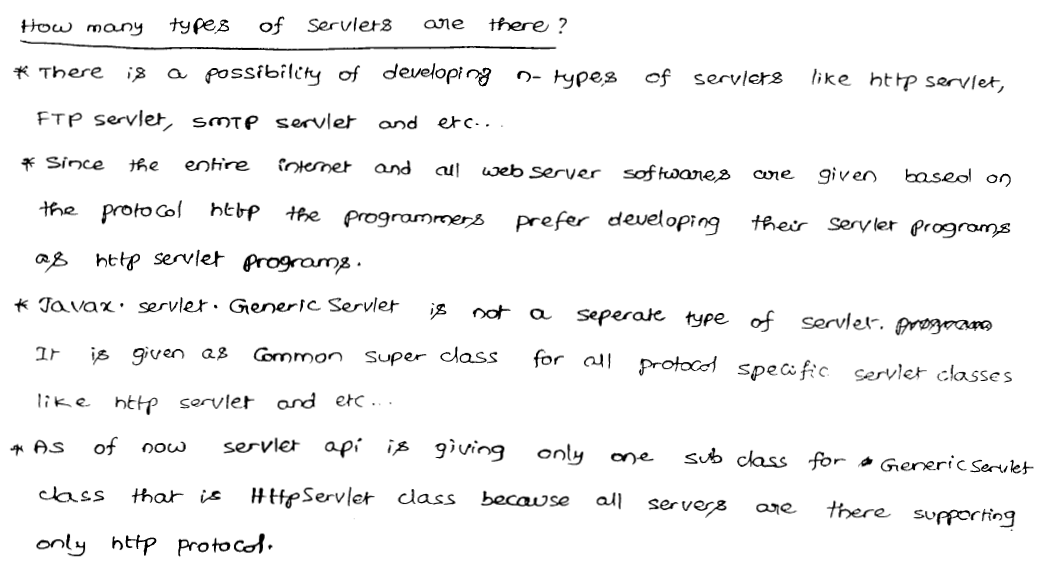 How many types of servlets are there?
* There is a possibility of developing n-types of servlets like http servlet,
FTP servlet, SMTP servlet and etc...
* Since the entire internet and all web server softwares are given based on
the protocol http the programmers prefer developing their servlet programs
as http servlet programs.
* Javax. servlet. Generic Servlet is not a seperate type of servlet. program
It is given as Common super class for all protocol specific servlet classes
like http servlet and etc...
* As of now servlet api is giving only one sub class for GenericServlet
class that is HttpServlet class because all servers are there supporting
only http protocol.